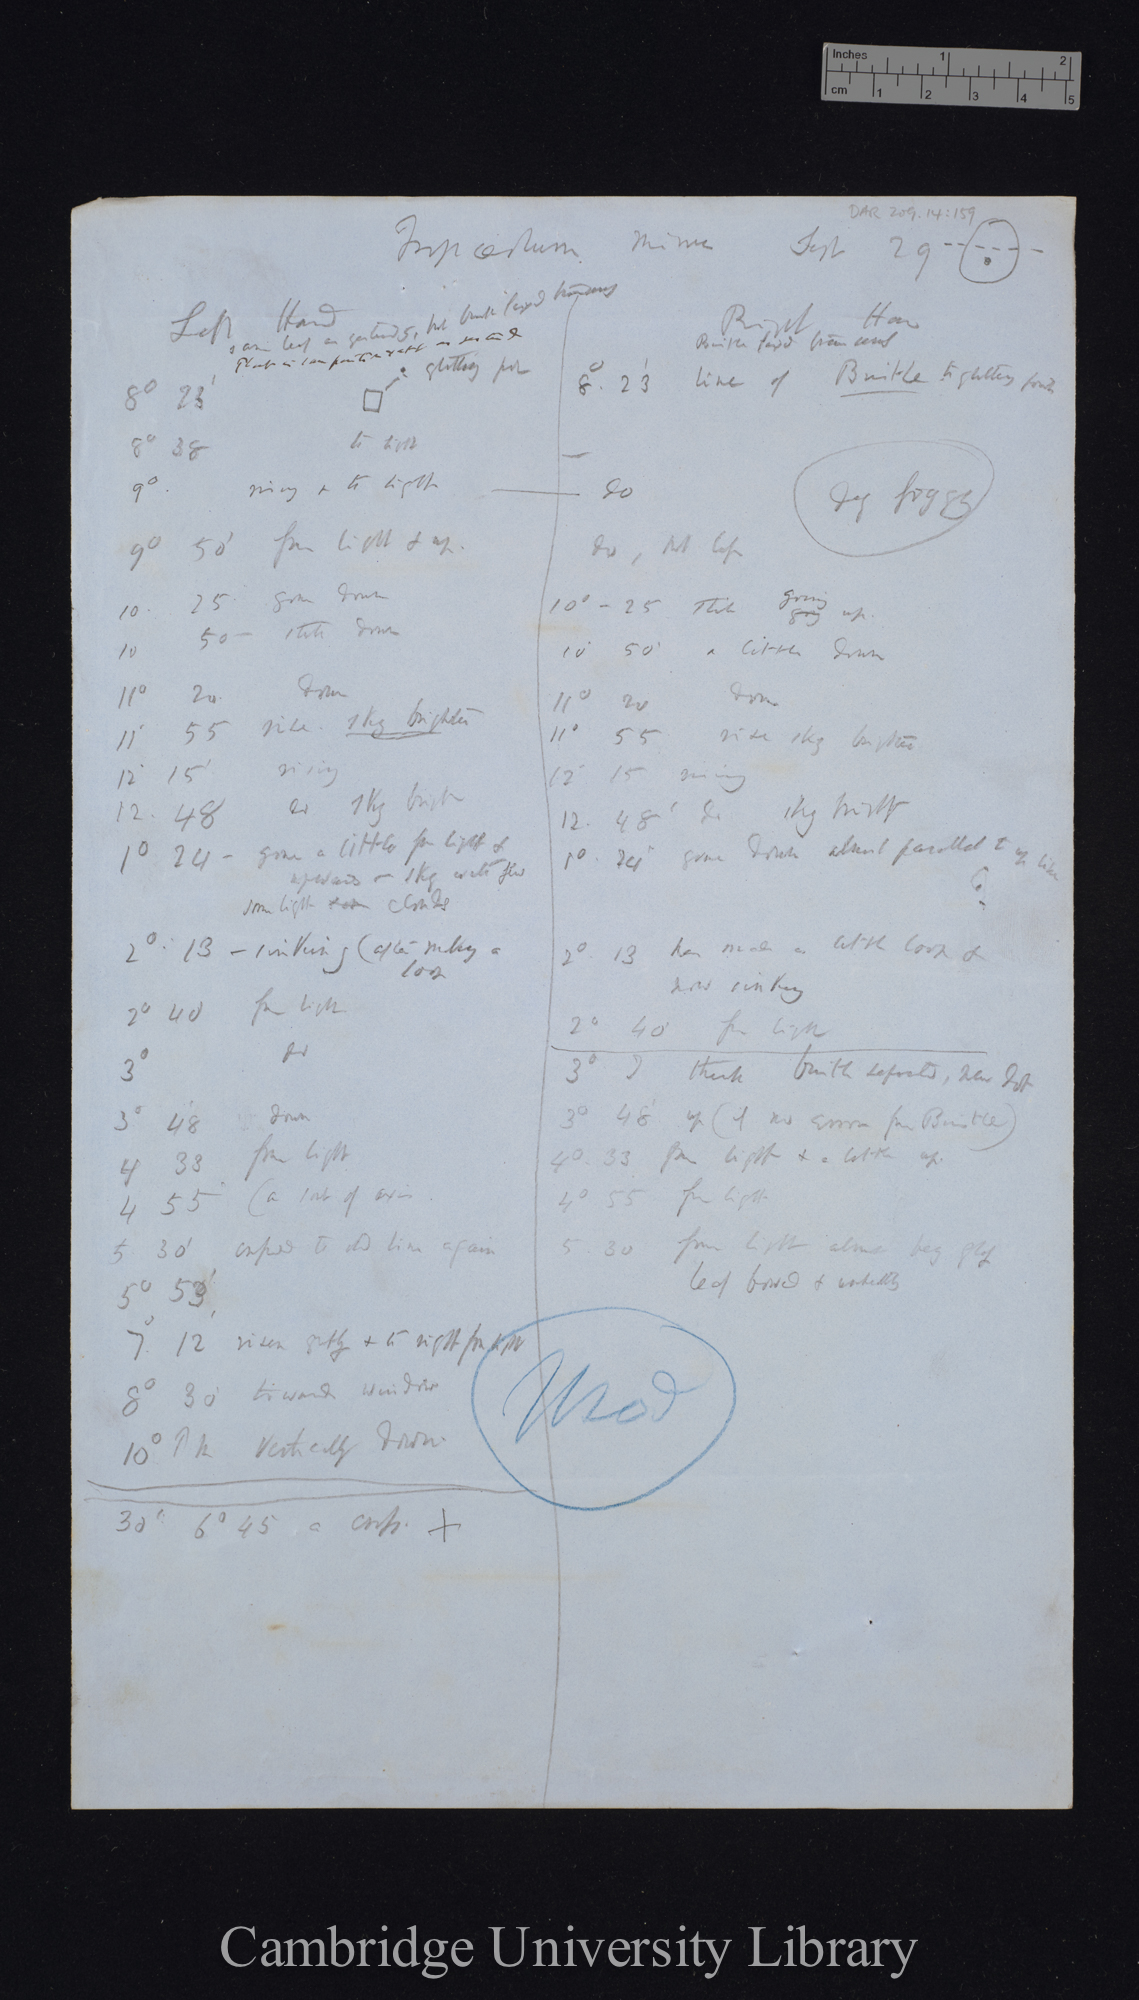 Inches 1 2
cm 1 2 3 4 5
DAR 209.14:159
Tropæolum minus Sept 29
Left Hand
8° 23'
8° 38 to light
9°. rising & to light
9° 50' from light & up.
10. 25 gone down
10 50 - still down
11° 20. down
11° 55 rise. sky brighter
12 15' rising
12. 48 do sky bright
1° 24 - gone a little from light &
upwards - sky with few
some light clouds
2° 13 - sinking (after making a
loop
2° 40 from light
3° do
3° 48 down
4 33 from light
4 55 (a sort of axis.
5 30' to old line again
5° 53'
7° 12 risen & to right from light
8° 30 towards window
10° P M vertically down.
30' 6° 45 a +
Right Hand
Bristle fixed transvers
8° 23' line of Bristle to glittery point
do
Day foggy
do, not left
10° - 25 still going up.
10 50' a little down
11° 20 down
11° 55 rise sky brighter
12 15 rising
12. 48' do sky bright
1° 24' gone down almost parallel to up line
2° 13 has made a little loop &
now sinking
2° 40 from light
3° I think bristle , new dot
3° 48' up (if no error from Bristle)
4° 33 from light & a little up
4° 55 from light
5. 30 from light
leaf bowed &
Mod
Cambridge University Library